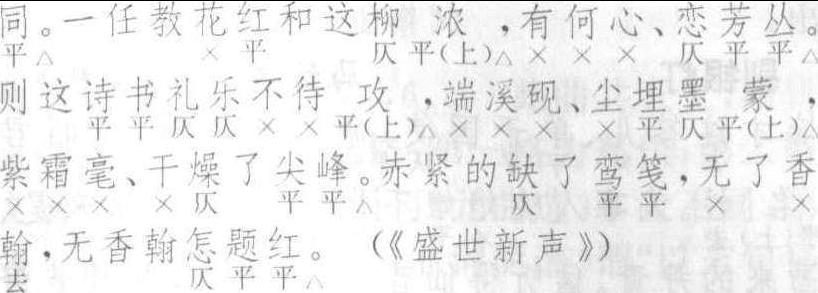 同。一任教花红和这柳 浓 ，有何心、恋芳丛。
平△ × 平 仄 平(上)△ × × × 仄 平 平△
则这诗书礼乐不待 攻 ，端溪砚、尘埋墨 蒙 ，
平 平 仄 仄 × × 平(上)△ × × × × 平 仄 平(上)△
紫霜毫、干燥了尖峰。赤紧的缺了鸾笺，无了香
× × × × 仄 平 平△ 仄 平 平 × ×
翰，无香翰怎题红。 （《盛世新声》）
去 仄 平 平△